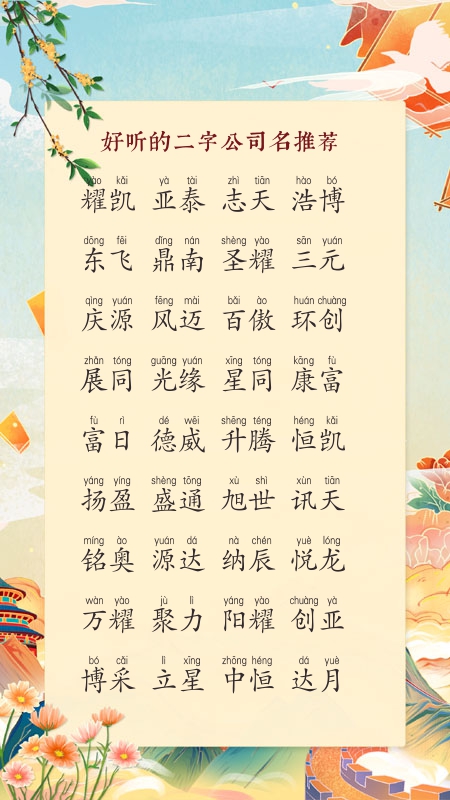 好听的二字公司名推荐
yào kǎi yà tài zhì tiān hào bó
耀凯 亚泰 志天 浩博
dōng fēi dǐng nán shèng yào sān yuán
东飞 鼎南 圣耀 三元
qìng yuán fēng mài bǎi ào huán chuàng
庆源 风迈 百傲 环创
zhǎn tóng guāng yuán xīng tóng kāng fù
展同 光缘 星同 康富
fù rì dé wēi shēng téng héng kǎi
富日 德威 升腾 恒凯
yáng yíng shèng tōng xù shì xùn tiān
扬盈 盛通 旭世 讯天
míng ào yuán dá nà chén yuè lóng
铭奥 源达 纳辰 悦龙
wàn yào jù lì yáng yào chuàng yà
万耀 聚力 阳耀 创亚
bó cǎi lì xīng zhōng héng dá yuè
博采 立星 中恒 达月